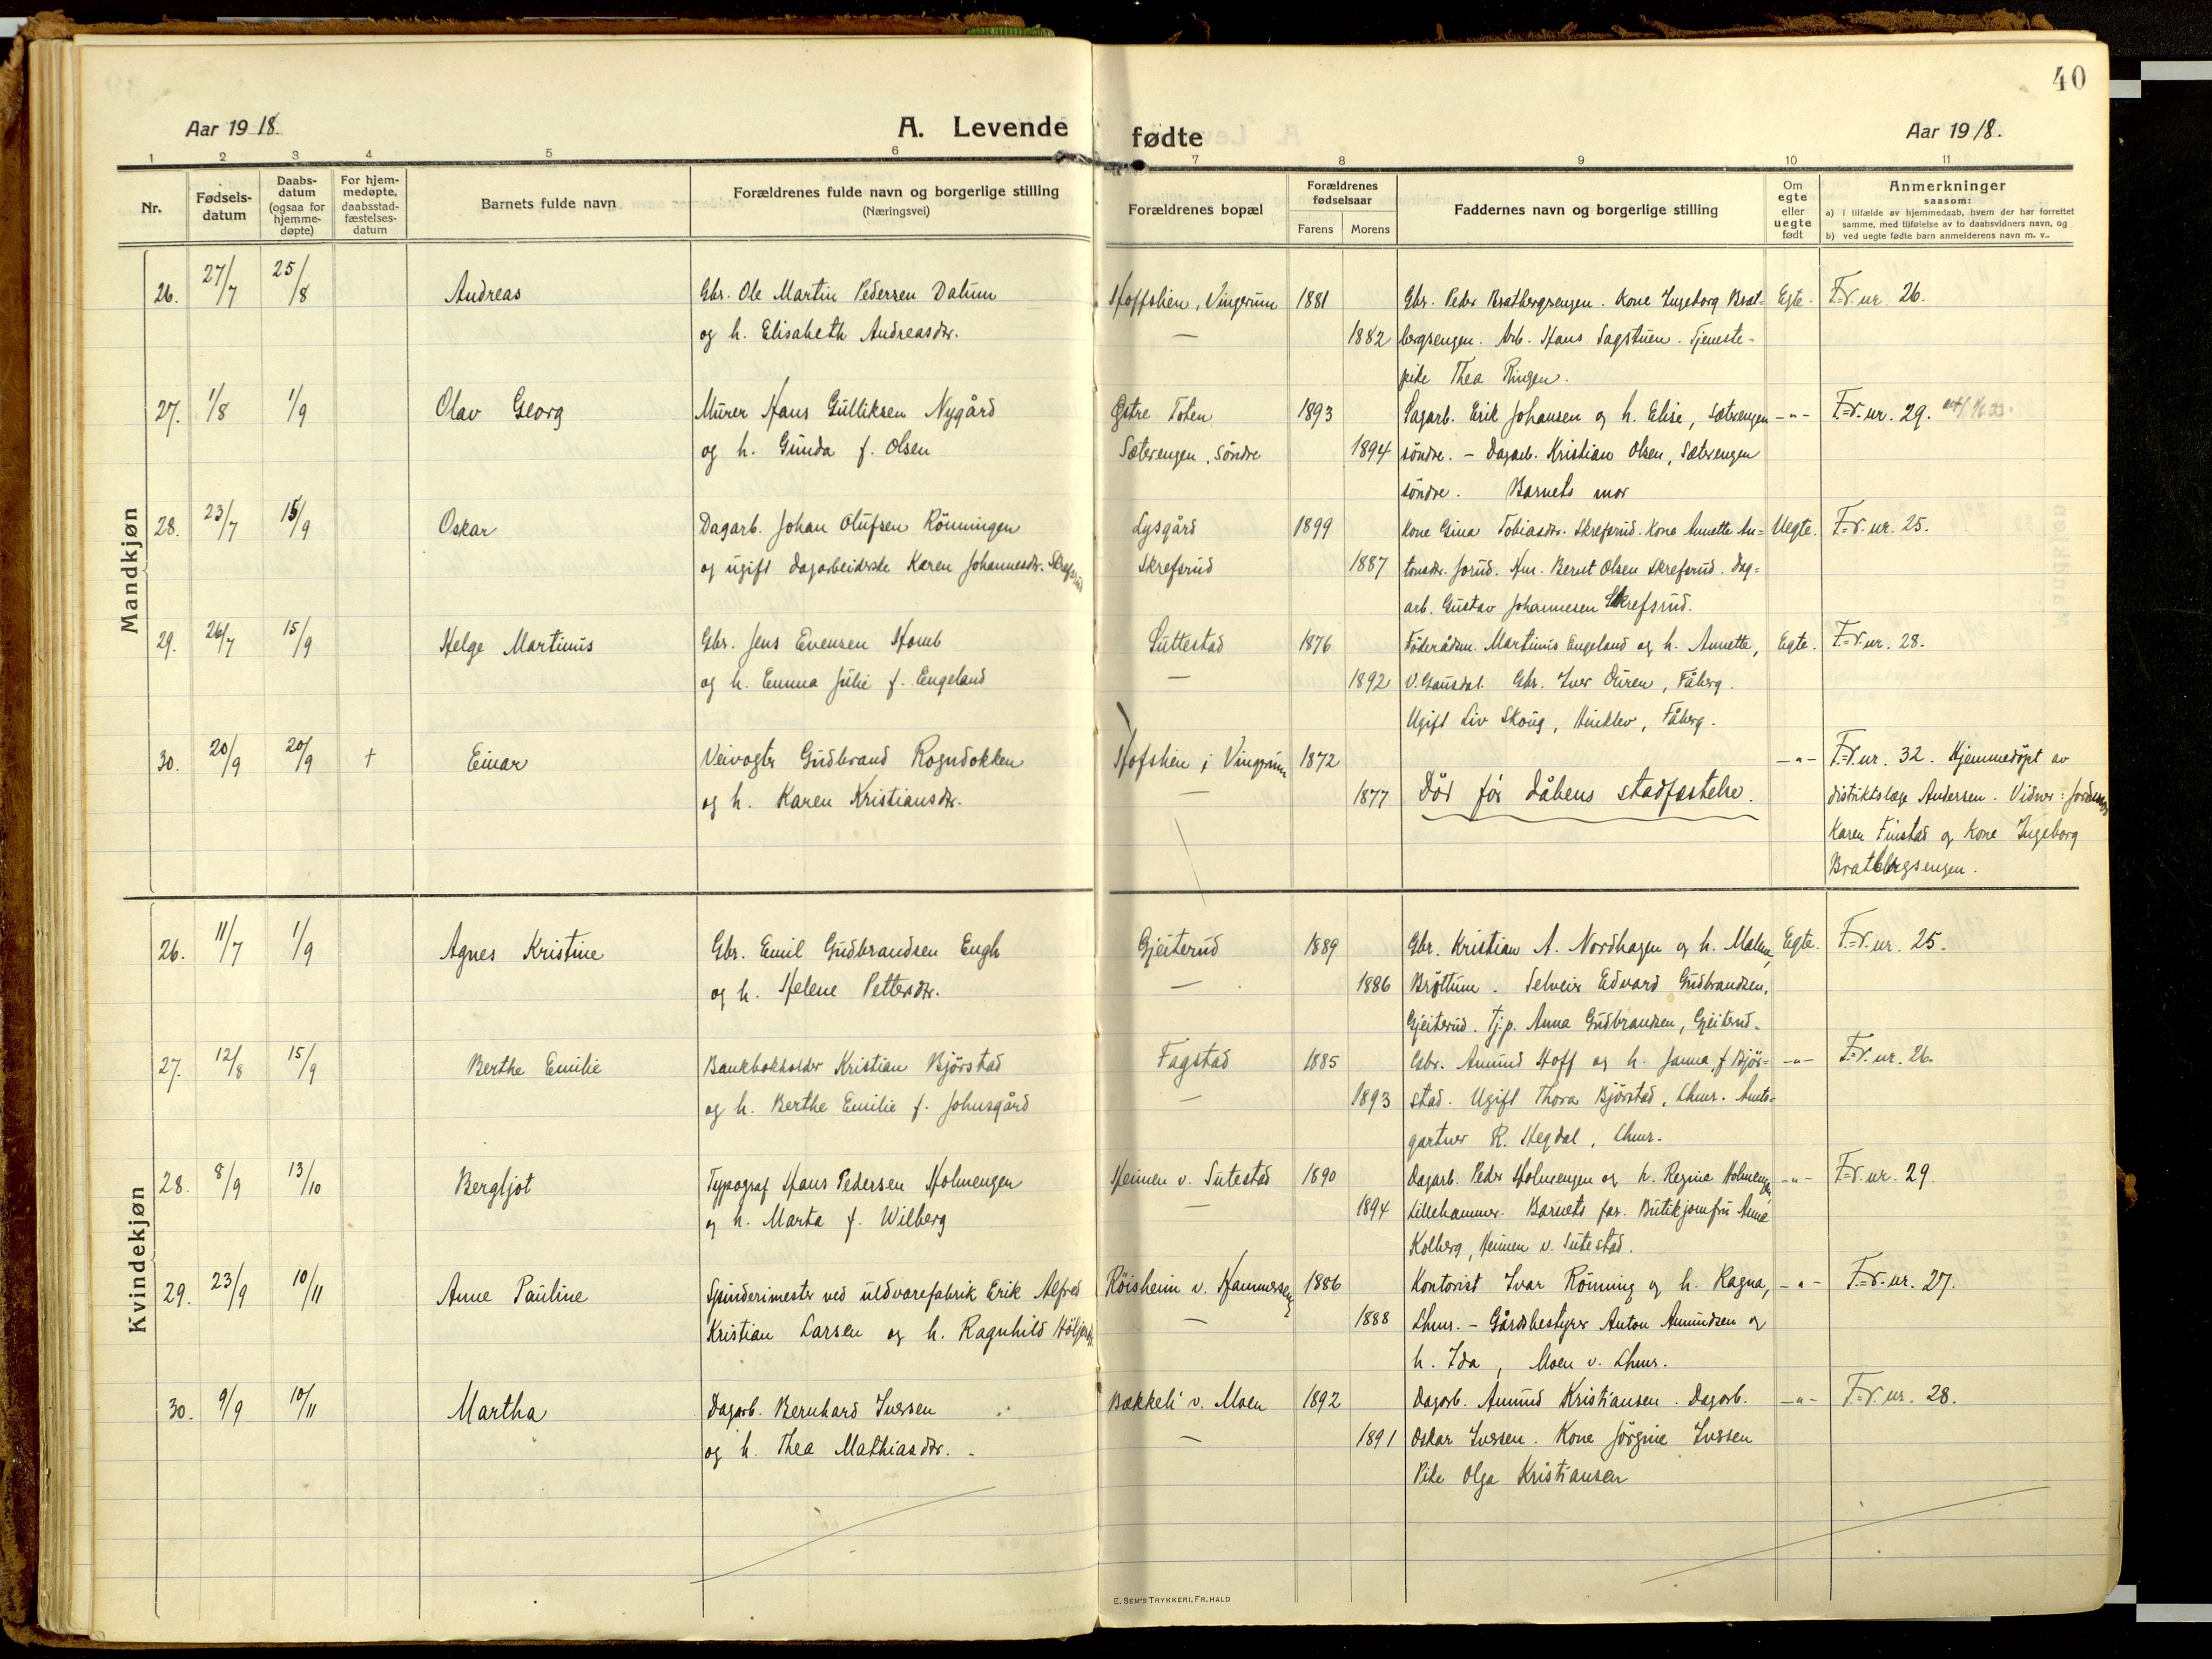 40
Aar 1918.
A. Levende fødte
Aar 1918.
1 2 3 4 5 6 7 8 9 10 11
Nr.
Fødsels-
datum
Daabs-
datum
(ogsaa for
hjemme-
døpte)
For hjem-
medøpte,
daabsstad-
fæstelses-
datum
Barnets fulde navn
Forældrenes fulde navn og borgerlige stilling
(Næringsvei)
Forældrenes bopæl
Forældrenes
fødselsaar
Farens Morens
Faddernes navn og borgerlige stilling
Om
egte
eller
uegte
født
Anmerkninger
saasom:
a) i tilfælde av hjemmedaab, hvem der har forrettet
samme, med tilføielse av to daabsvidners navn, og
b) ved uegte fødte barn anmelderens navn m. v..
Mandkjøn
26. 27/7 25/8 Andreas Gbr. Ole Martin Pedersen Dalum Hoffslien, Vingrum 1881 Gbr. Peder Bratbergsengen. Kone Ingeborg Brat- Egte. F.r. nr. 26.
og h. Elisabeth Andreasdtr. — 1882 bergsengen. Arb. Hans Sagstuen. Tjeneste-
pike Thea Ringen.
27. 1/8 1/9 Olav Georg Murer Hans Gulliksen Nygård Østre Toten 1893 Sagarb. Erik Johansen og h. Elise, Sæterengen -"- F.r. nr. 29.
og h. Gunda f. Olsen Sæterengen, søndre 1894 søndre. - Dagarb. Kristian Olsen, Sæterengen
søndre. Barnets mor
28. 23/7 15/9 Oskar Dagarb. Johan Olufsen Rönningen Lysgård 1899 Kone Gina Tobiasdtr. Skrefsrud. Kone Annette An- Uegte. F.r. nr. 25.
og ugift dagarbeiderske Karen Johannesdtr. Skrefsrud Skrefsrud 1887 tonsdtr. Jorud. Hm. Bernt Olsen Skrefsrud. Dag-
arb. Gustav Johannesen Skrefsrud.
29. 26/7 15/9 Helge Martinus Gbr. Jens Evensen Homb Suttestad 1876 Föderådsm. Martinus Engeland og h. Annette, Egte. F.r. nr. 28.
og h. Emma Julie f. Engeland — 1892 V. Gausdal. Gbr. Iver Öuren, Fåberg.
Ugift Liv Skoug, Hinklev, Fåberg.
30. 20/9 20/9 † Einar Veivogter Gudbrand Rogndokken Hofslien i Vingrum 1872 -"- F.r. nr. 32. Hjemmedöpt av
og h. Karen Kristiansdtr. — 1877 Död för dåbens stadfæstelse. distriktslæge Andersen. Vidner: jordemor
Karen Finstad og Kone Ingeborg
Bratbergsengen.
Kvindekjøn
26. 11/7 1/9 Agnes Kristine Gbr. Emil Gudbrandsen Engh Gjeiterud 1889 Gbr. Kristian A. Nordhagen og h. Malene, Egte. F.r. nr. 25.
og h. Helene Pettersdtr. — 1886 Brøttum. Selveier Edvard Gudbrandsen,
Gjeiterud. Tj.p. Anna Gudbrandsen, Gjeiterud.
27. 12/8 15/9 Berthe Emilie Bankbokholder Kristian Bjørstad Fagstad 1885 Gbr. Amund Hoff og h. Janna f. Björ- -"- F.r. nr. 26.
og h. Berthe Emilie f. Johnsgård — 1893 stad. Ugift Thora Bjørstad, Lhmr. Amts-
gartner R. Hegdal, Lhmr.
28. 8/9 13/10 Bergljot Typograf Hans Pedersen Holmengen Heimen v. Sutestad 1890 Dagarb. Peder Holmengen og h. Regine Holmengen, -"- F.r. nr. 29.
og h. Marta f. Wilberg — 1894 Lillehammer. Barnets far. Butikjomfru Anna
Kolberg, Heimen v. Sutestad.
29. 23/9 10/11 Anne Pauline Spinderimester ved uldvarefabrik Erik Alfred Röisheim v. Hammerseng 1886 Kontorist Ivar Rönning og h. Ragna, -"- F.r. nr. 27.
Kristian Larsen og h. Ragnhild — 1888 Lhmr. - Gårdsbestyrer Anton Amundsen og
h. Ida, Moen v. Lhmr.
30. 9/9 10/11 Martha Dagarb. Bernhard Iversen Bækkeli v. Moen 1892 Dagarb. Amund Kristiansen. Dagarb. -"- F.r. nr. 28.
og h. Thea Mathiasdtr. — 1891 Oskar Iversen. Kone Jörgine Iversen
Pike Olga Kristiansen
E. SEM'S TRYKKERI, FR.HALD